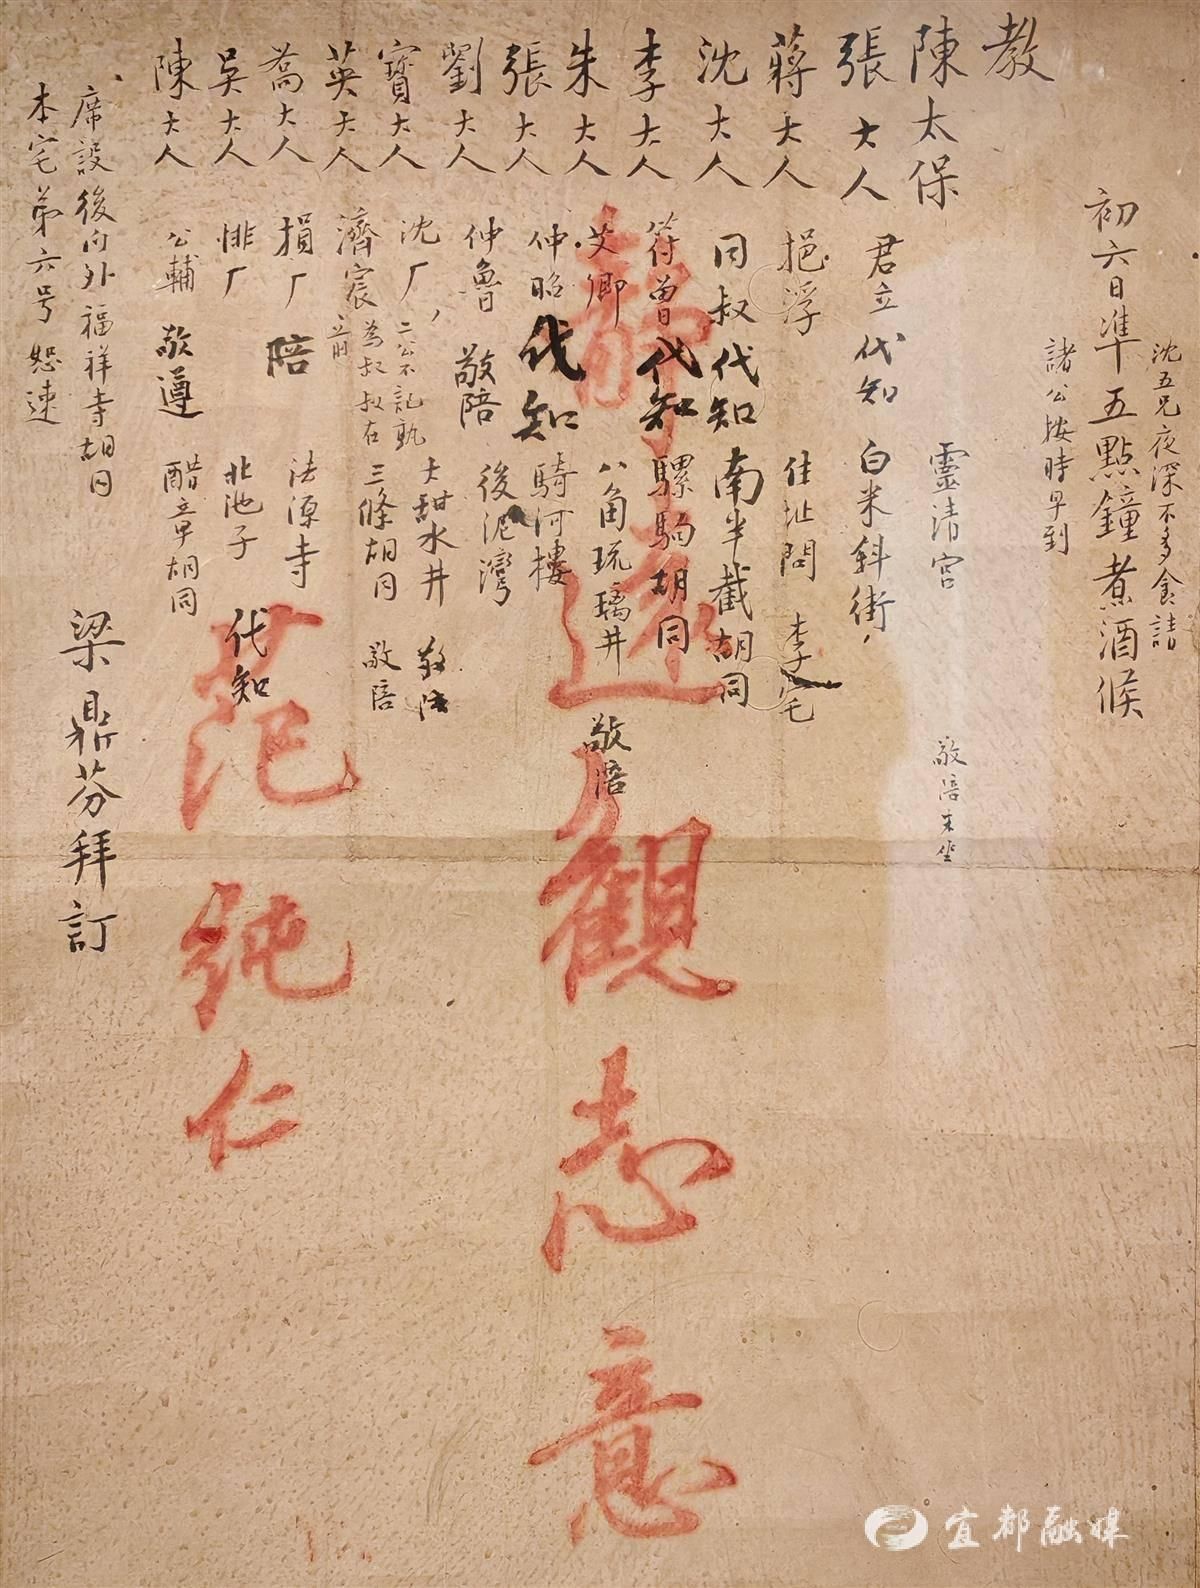 沈五兄夜深不多食請
初六日準五點鐘煮酒候
諸公按時早到
教
陳太保 靈清宮 敬陪末坐
張大人 君立 代知 白米斜街
蔣大人 挹浮 住址問李宅
沈大人 同叔 代知 南半截胡同
李大人 符曾 代知 騾駒胡同
朱大人 艾卿 八角琉璃井 敬陪
張大人 仲昭 代知 騎河樓
劉大人 仲魯 敬陪 後泥灣
寶大人 沈厂 二公不記孰 大甜水井 敬陪
英大人 濟宸 為叔叔在 三條胡同 敬陪
喬大人 損厂 陪 法源寺
吳大人 悱厂 北池子 代知
陳大人 公輔 敬遵 醋章胡同
席設後門外福祥寺胡同
本宅第六号恕速
梁鼎芬拜訂
靜遠觀志意
范純仁
宜都融媒